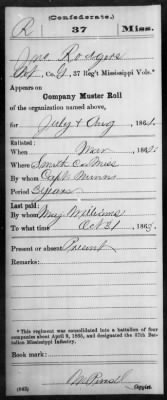 (Confederate.)
R 37 Miss.
Jno Rodgers
Co. G, 37 Reg't Mississippi Vols.*
Appears on
Company Muster Roll
of the organization named above,
for July & Aug, 186
Enlisted:
When Mar, 186
Where Smith Co Miss
By whom Capt
Period 3 years
Last paid:
By whom Maj Williams
To what time Oct 31, 186
Present or absent Present
Remarks:
*This regiment was consolidated into a battalion of four
companies about April 9, 1865, and designated the 37th Bat-
talion Mississippi Infantry.
Book mark:
(642) Copyist.